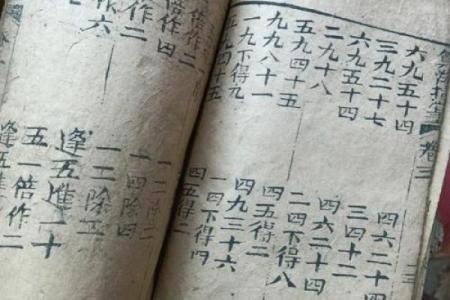 卷三
六九五十四
三九二十七
六九五十四
二九十八
五九四十五
九九八十一
一九下得九
五九四十五
四六二十四
三四十二
四六二十四
二四下得八
四五得二
四九三十六
一四下得四
四五得二
倍作二
倍作四
作二
作六
一二除二
一四除四
逢五進一十
五一倍作二
逢五進